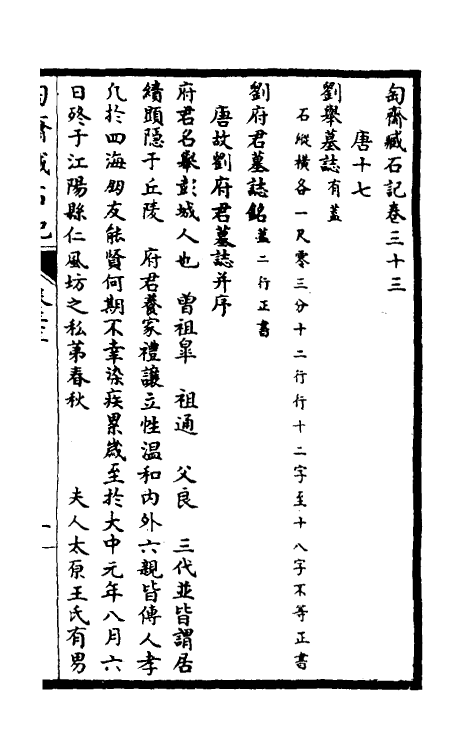 匋齋臧石記卷三十三
唐十七
劉舉墓誌有蓋
石縱橫各一尺零三分十二行行十二字至十八字不等正書
劉府君墓誌銘蓋二行正書
唐故劉府君墓誌并序
府君名舉彭城人也 曾祖皐 祖通 父良 三代並皆謂居
績顯隱于丘陵 府君養家禮讓立性温和內外六親皆傳人孝
凢於四海朋友能賢何期不幸染疾累歲至於大中元年八月六
日終于江陽縣仁風坊之私第春秋 夫人太原王氏有男
匋齋臧石記 卷三十三 一